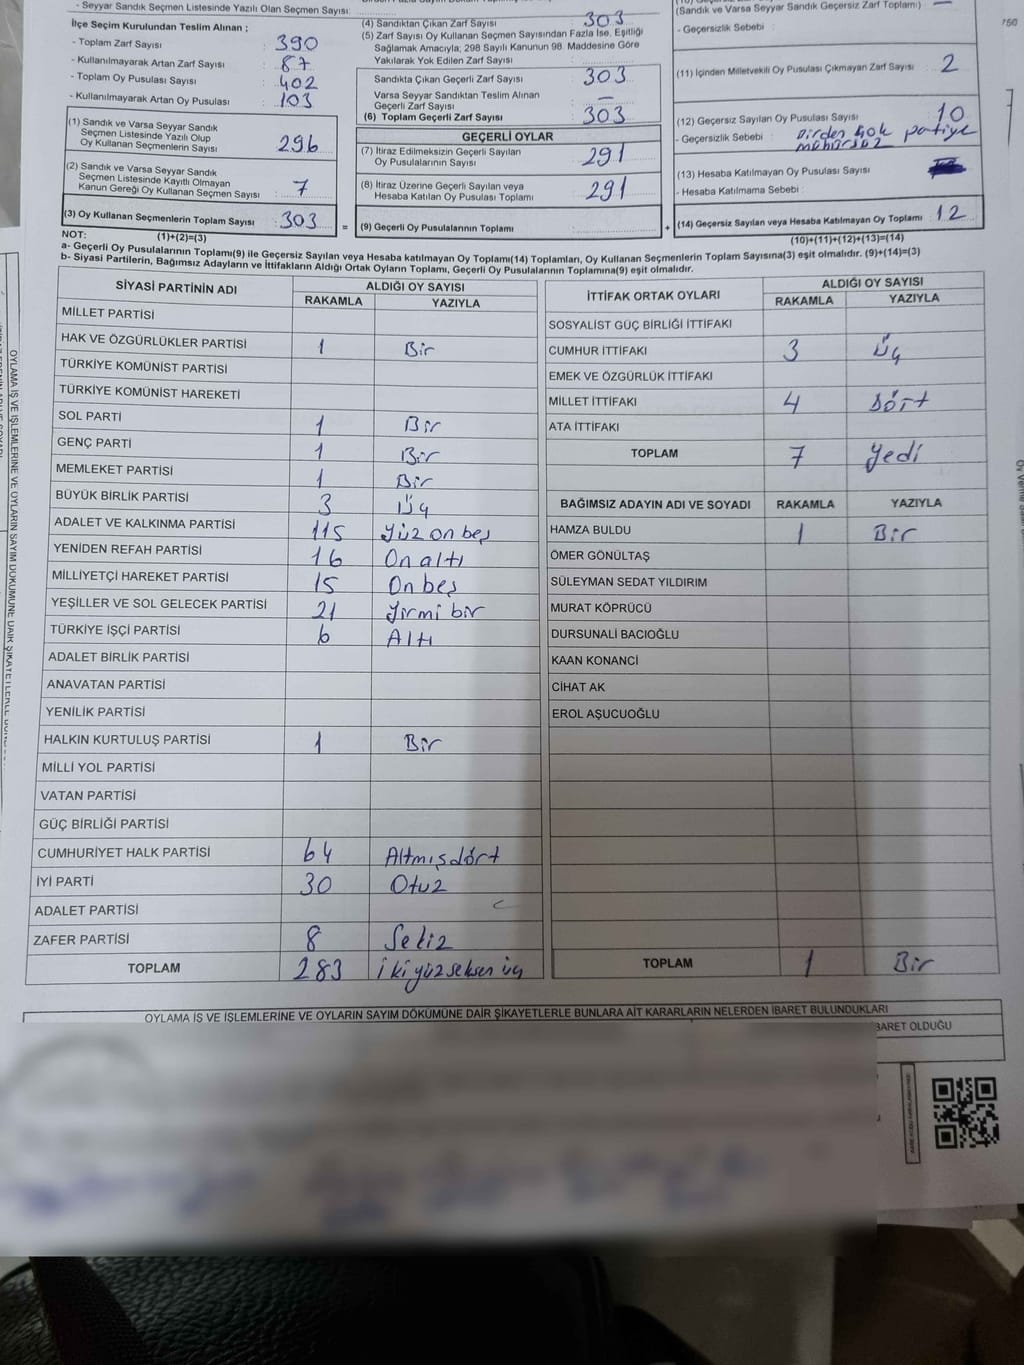 - Seyyar Sandık Seçmen Listesinde Yazılı Olan Seçmen Sayısı:
İlçe Seçim Kurulundan Teslim Alınan ;
- Toplam Zarf Sayısı : 390
- Kullanılmayarak Artan Zarf Sayısı : 87
- Toplam Oy Pusulası Sayısı : 402
- Kullanılmayarak Artan Oy Pusulası : 103
(1) Sandık ve Varsa Seyyar Sandık
Seçmen Listesinde Yazılı Olup
Oy Kullanan Seçmenlerin Sayısı : 296
(2) Sandık ve Varsa Seyyar Sandık
Seçmen Listesinde Kayıtlı Olmayan
Kanun Gereği Oy Kullanan Seçmen Sayısı : 7
(3) Oy Kullanan Seçmenlerin Toplam Sayısı : 303 =
(4) Sandıktan Çıkan Zarf Sayısı : 303
(5) Zarf Sayısı Oy Kullanan Seçmen Sayısından Fazla İse, Eşitliği
Sağlamak Amacıyla; 298 Sayılı Kanunun 98. Maddesine Göre
Yakılarak Yok Edilen Zarf Sayısı :
Sandıkta Çıkan Geçerli Zarf Sayısı : 303
Varsa Seyyar Sandıktan Teslim Alınan
Geçerli Zarf Sayısı : —
(6) Toplam Geçerli Zarf Sayısı : 303
GEÇERLİ OYLAR
(7) İtiraz Edilmeksizin Geçerli Sayılan
Oy Pusulalarının Sayısı : 291
(8) İtiraz Üzerine Geçerli Sayılan veya
Hesaba Katılan Oy Pusulası Toplamı : 291
(9) Geçerli Oy Pusulalarının Toplamı : +
(Sandık ve Varsa Seyyar Sandık Geçersiz Zarf Toplamı) : —
- Geçersizlik Sebebi :
(11) İçinden Milletvekili Oy Pusulası Çıkmayan Zarf Sayısı : 2
(12) Geçersiz Sayılan Oy Pusulası Sayısı : 10
- Geçersizlik Sebebi : Birden çok partiye
(13) Hesaba Katılmayan Oy Pusulası Sayısı :
- Hesaba Katılmama Sebebi :
(14) Geçersiz Sayılan veya Hesaba Katılmayan Oy Toplamı : 12
NOT: (1)+(2)=(3) (10)+(11)+(12)+(13)=(14)
a- Geçerli Oy Pusulalarının Toplamı(9) ile Geçersiz Sayılan veya Hesaba katılmayan Oy Toplamı(14) Toplamları, Oy Kullanan Seçmenlerin Toplam Sayısına(3) eşit olmalıdır. (9)+(14)=(3)
b- Siyasi Partilerin, Bağımsız Adayların ve İttifakların Aldığı Ortak Oyların Toplamı, Geçerli Oy Pusulalarının Toplamına(9) eşit olmalıdır.
SİYASİ PARTİNİN ADI ALDIĞI OY SAYISI
RAKAMLA YAZIYLA
MİLLET PARTİSİ
HAK VE ÖZGÜRLÜKLER PARTİSİ 1 Bir
TÜRKİYE KOMÜNİST PARTİSİ
TÜRKİYE KOMÜNİST HAREKETİ
SOL PARTİ 1 Bir
GENÇ PARTİ 1 Bir
MEMLEKET PARTİSİ 1 Bir
BÜYÜK BİRLİK PARTİSİ 3 Üç
ADALET VE KALKINMA PARTİSİ 115 Yüz on beş
YENİDEN REFAH PARTİSİ 16 On altı
MİLLİYETÇİ HAREKET PARTİSİ 15 On beş
YEŞİLLER VE SOL GELECEK PARTİSİ 21 Yirmi bir
TÜRKİYE İŞÇİ PARTİSİ 6 Altı
ADALET BİRLİK PARTİSİ
ANAVATAN PARTİSİ
YENİLİK PARTİSİ
HALKIN KURTULUŞ PARTİSİ 1 Bir
MİLLİ YOL PARTİSİ
VATAN PARTİSİ
GÜÇ BİRLİĞİ PARTİSİ
CUMHURİYET HALK PARTİSİ 64 Altmışdört
İYİ PARTİ 30 Otuz
ADALET PARTİSİ
ZAFER PARTİSİ 8 Sekiz
TOPLAM 283 İkiyüzseksen üç
İTTİFAK ORTAK OYLARI ALDIĞI OY SAYISI
RAKAMLA YAZIYLA
SOSYALİST GÜÇ BİRLİĞİ İTTİFAKI
CUMHUR İTTİFAKI 3 Üç
EMEK VE ÖZGÜRLÜK İTTİFAKI
MİLLET İTTİFAKI 4 Dört
ATA İTTİFAKI
TOPLAM 7 Yedi
BAĞIMSIZ ADAYIN ADI VE SOYADI RAKAMLA YAZIYLA
HAMZA BULDU 1 Bir
ÖMER GÖNÜLTAŞ
SÜLEYMAN SEDAT YILDIRIM
MURAT KÖPRÜCÜ
DURSUNALİ BACIOĞLU
KAAN KONANCİ
CİHAT AK
EROL AŞUCUOĞLU
TOPLAM 1 Bir
OYLAMA İŞ VE İŞLEMLERİNE VE OYLARIN SAYIM DÖKÜMÜNE DAİR ŞİKAYETLERLE BUNLARA AİT KARARLARIN NELERDEN İBARET BULUNDUKLARI
BARET OLDUĞU